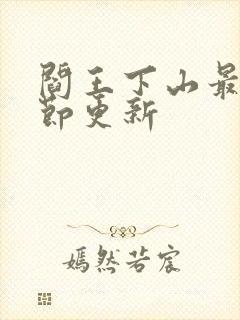 閻王下山最
節更新
嫣然若宸